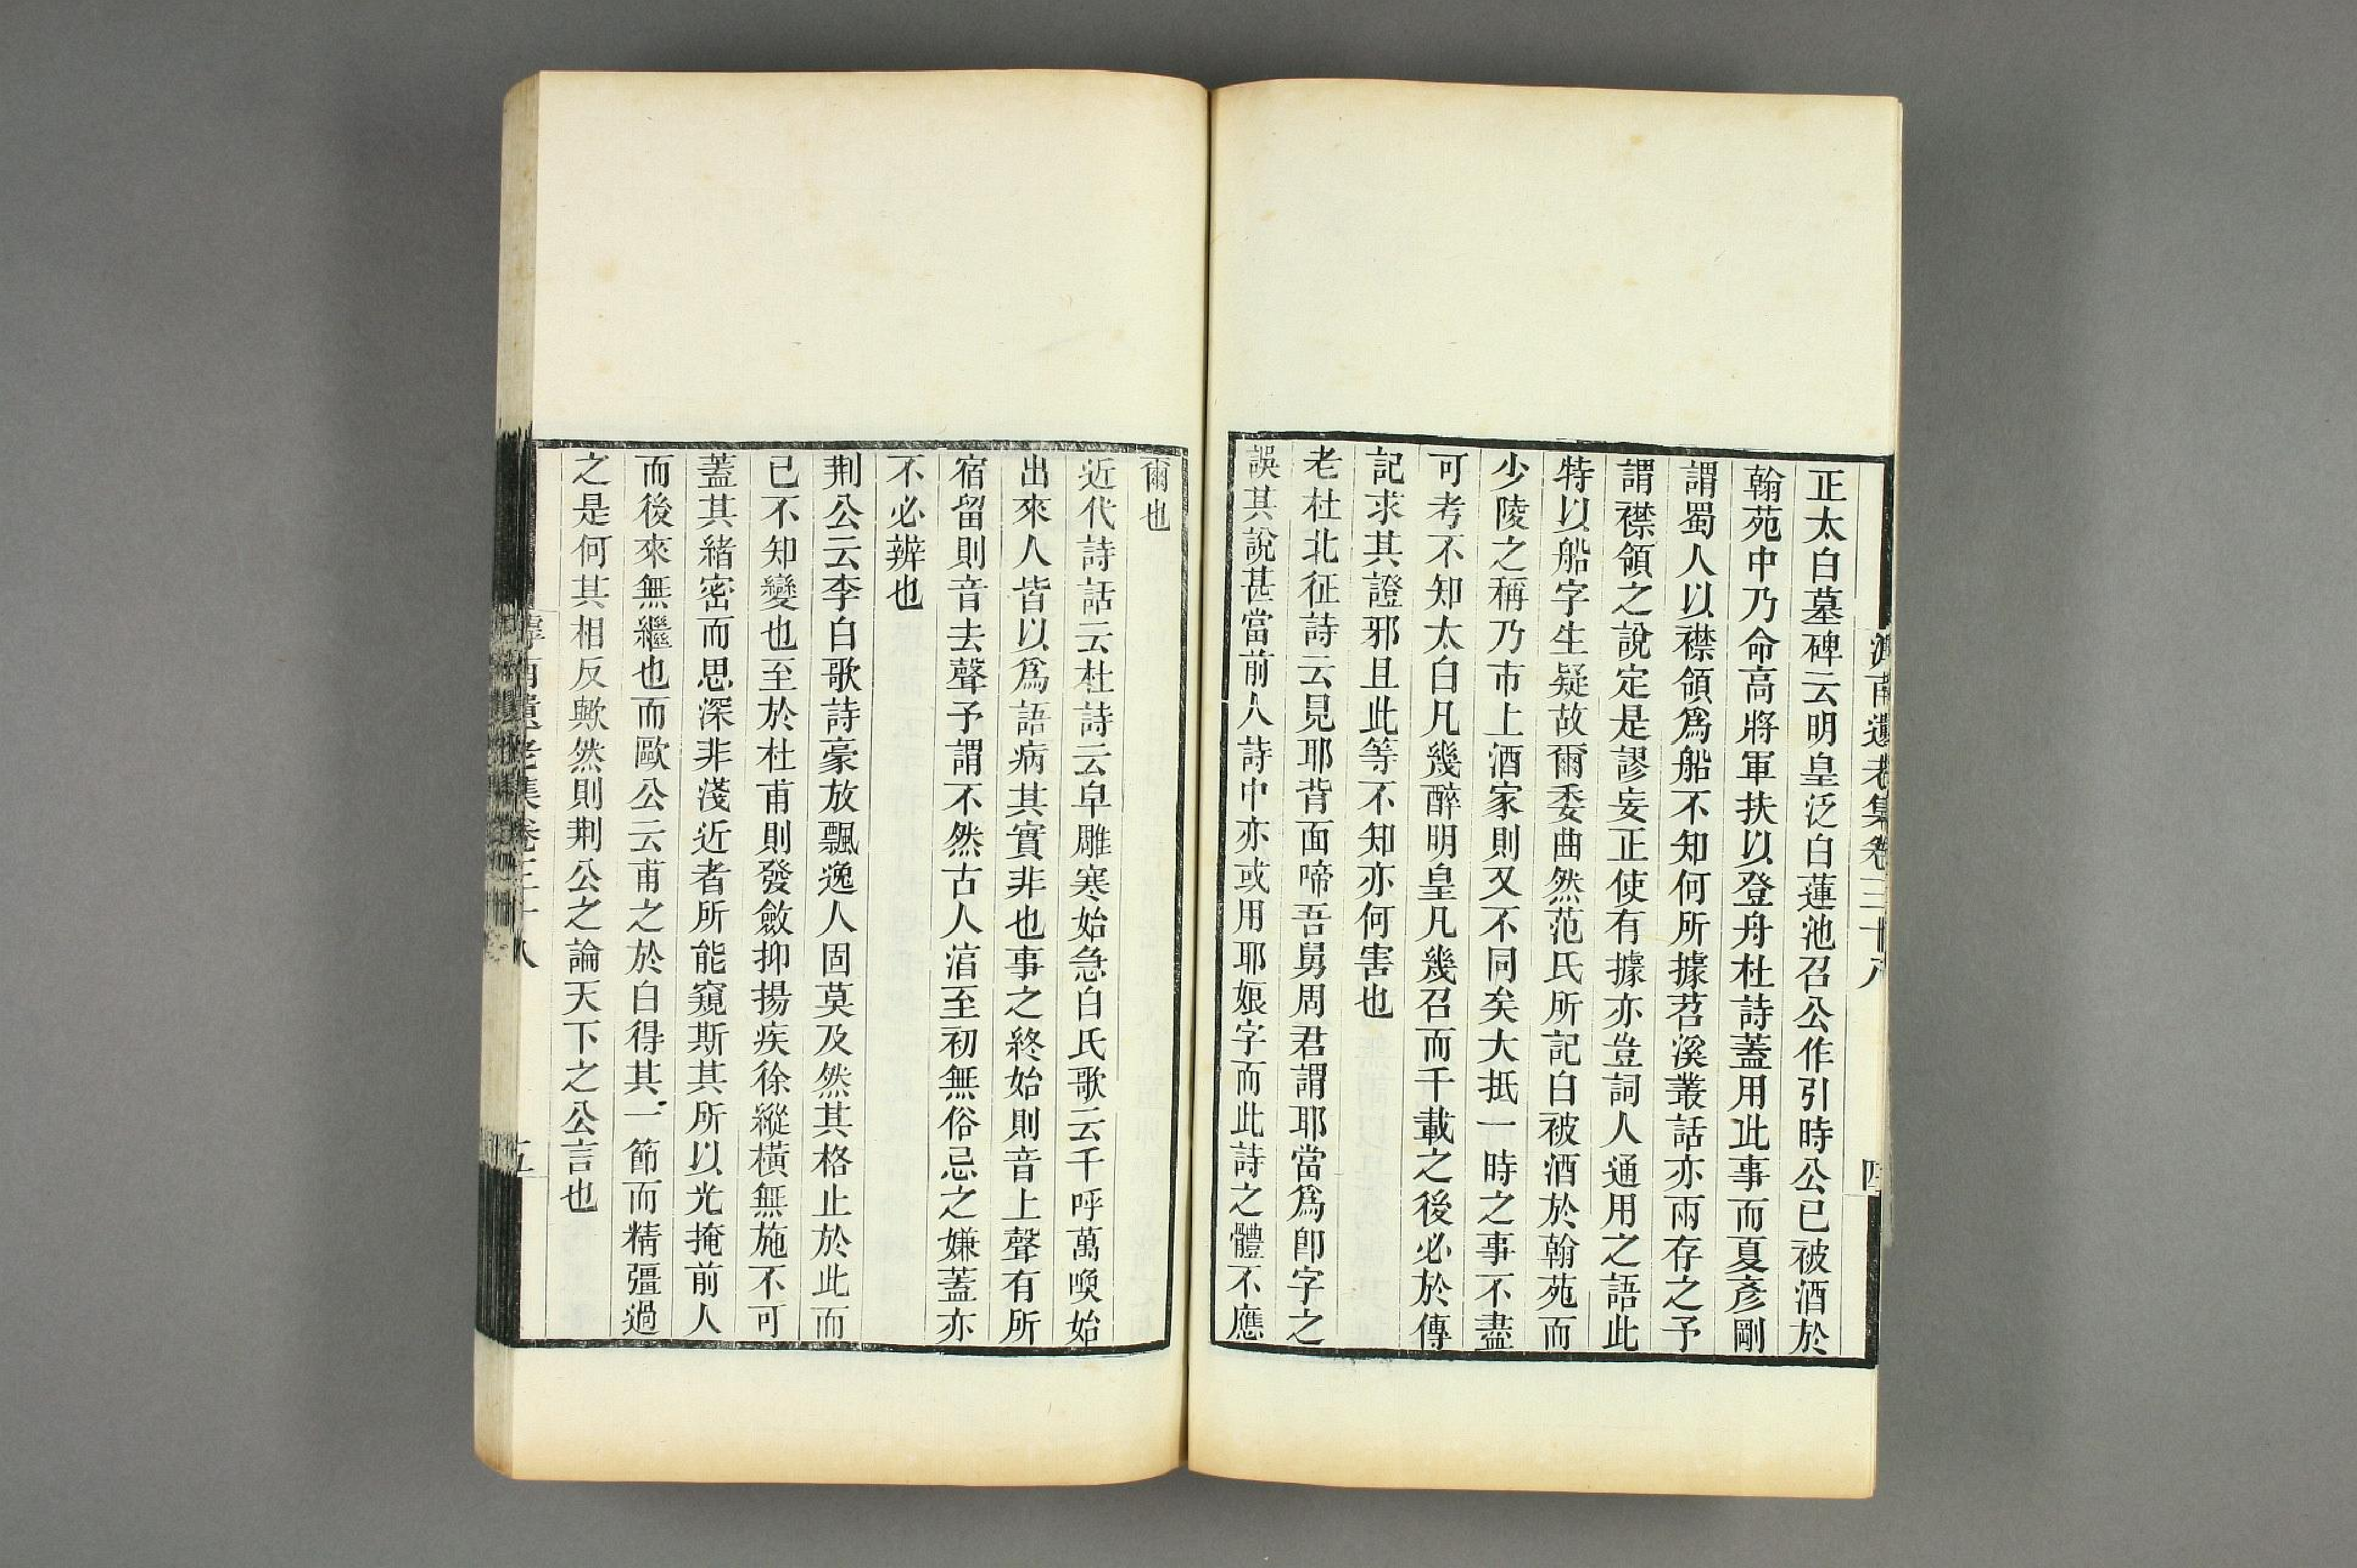 滹南遺老集卷三十八
四
正太白墓碑云明皇泛白蓮池召公作引時公已被酒於
翰苑中乃命高將軍扶以登舟杜詩蓋用此事而夏彥剛
謂蜀人以襟領爲船不知何所據苕溪叢話亦兩存之予
謂襟領之說定是謬妄正使有據亦豈詞人通用之語此
特以船字生疑故爾委曲然范氏所記白被酒於翰苑而
少陵之稱乃市上酒家則又不同矣大抵一時之事不盡
可考不知太白凡幾醉明皇凡幾召而千載之後必於傳
記求其證邪且此等不知亦何害也
老杜北征詩云見耶背面啼吾舅周君謂耶當爲卽字之
誤其說甚當前人詩中亦或用耶娘字而此詩之體不應
爾也
近代詩話云杜詩云皁雕寒始急白氏歌云千呼萬喚始
出來人皆以爲語病其實非也事之終始則音上聲有所
宿留則音去聲予謂不然古人淯至初無俗忌之嫌蓋亦
不必辨也
荆公云李白歌詩豪放飄逸人固莫及然其格止於此而
已不知變也至於杜甫則發斂抑揚疾徐縱橫無施不可
蓋其緒密而思深非淺近者所能窺斯其所以光掩前人
而後來無繼也而歐公云甫之於白得其一節而精彊過
之是何其相反歟然則荆公之論天下之公言也
滹南遺老集卷三十八
五